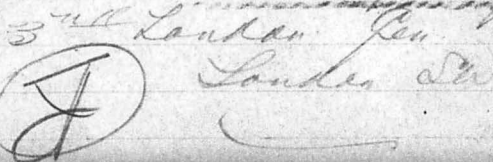 3rd London Gen
London SW